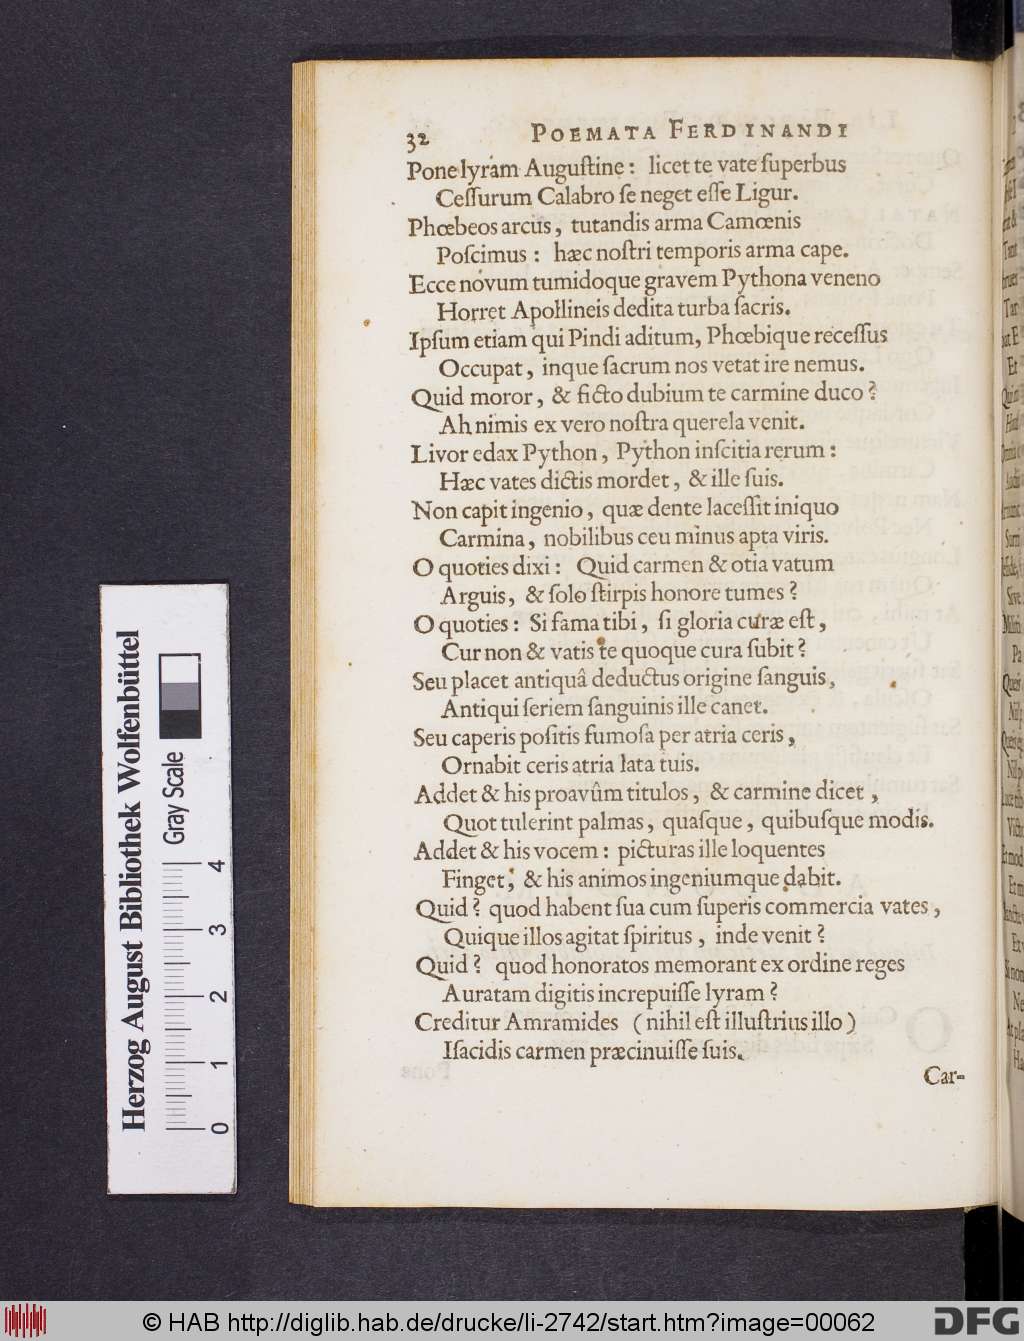 32 POEMATA FERDINANDI
Pone lyram Auguſtine: licet te vate ſuperbus
Ceſſurum Calabro ſe neget eſſe Ligur.
Phœbeos arcus, tutandis arma Camœnis
Poſcimus: hæc noſtri temporis arma cape.
Ecce novum tumidoque gravem Pythona veneno
Horret Apollineis dedita turba ſacris.
Ipſum etiam qui Pindi aditum, Phœbique receſſus
Occupat, inque ſacrum nos vetat ire nemus.
Quid moror, & ficto dubium te carmine duco?
Ah nimis ex vero noſtra querela venit.
Livor edax Python, Python inſcitia rerum:
Hæc vates dictis mordet, & ille ſuis.
Non capit ingenio, quæ dente laceſſit iniquo
Carmina, nobilibus ceu minus apta viris.
O quoties dixi: Quid carmen & otia vatum
Arguis, & ſolo ſtirpis honore tumes?
O quoties: Si fama tibi, ſi gloria curæ eſt,
Cur non & vatis te quoque cura ſubit?
Seu placet antiquâ deductus origine ſanguis,
Antiqui ſeriem ſanguinis ille canet.
Seu caperis poſitis fumoſa per atria ceris,
Ornabit ceris atria lata tuis.
Addet & his proavûm titulos, & carmine dicet,
Quot tulerint palmas, quaſque, quibuſque modis.
Addet & his vocem: picturas ille loquentes
Finget, & his animos ingeniumque dabit.
Quid? quod habent ſua cum ſuperis commercia vates,
Quique illos agitat ſpiritus, inde venit?
Quid? quod honoratos memorant ex ordine reges
Auratam digitis increpuiſſe lyram?
Creditur Amramides (nihil eſt illuſtrius illo)
Iſacidis carmen præcinuiſſe ſuis.
Car-
Herzog August Bibliothek Wolfenbüttel
Gray Scale
0 1 2 3 4
© HAB http://diglib.hab.de/drucke/li-2742/start.htm?image=00062
DFG